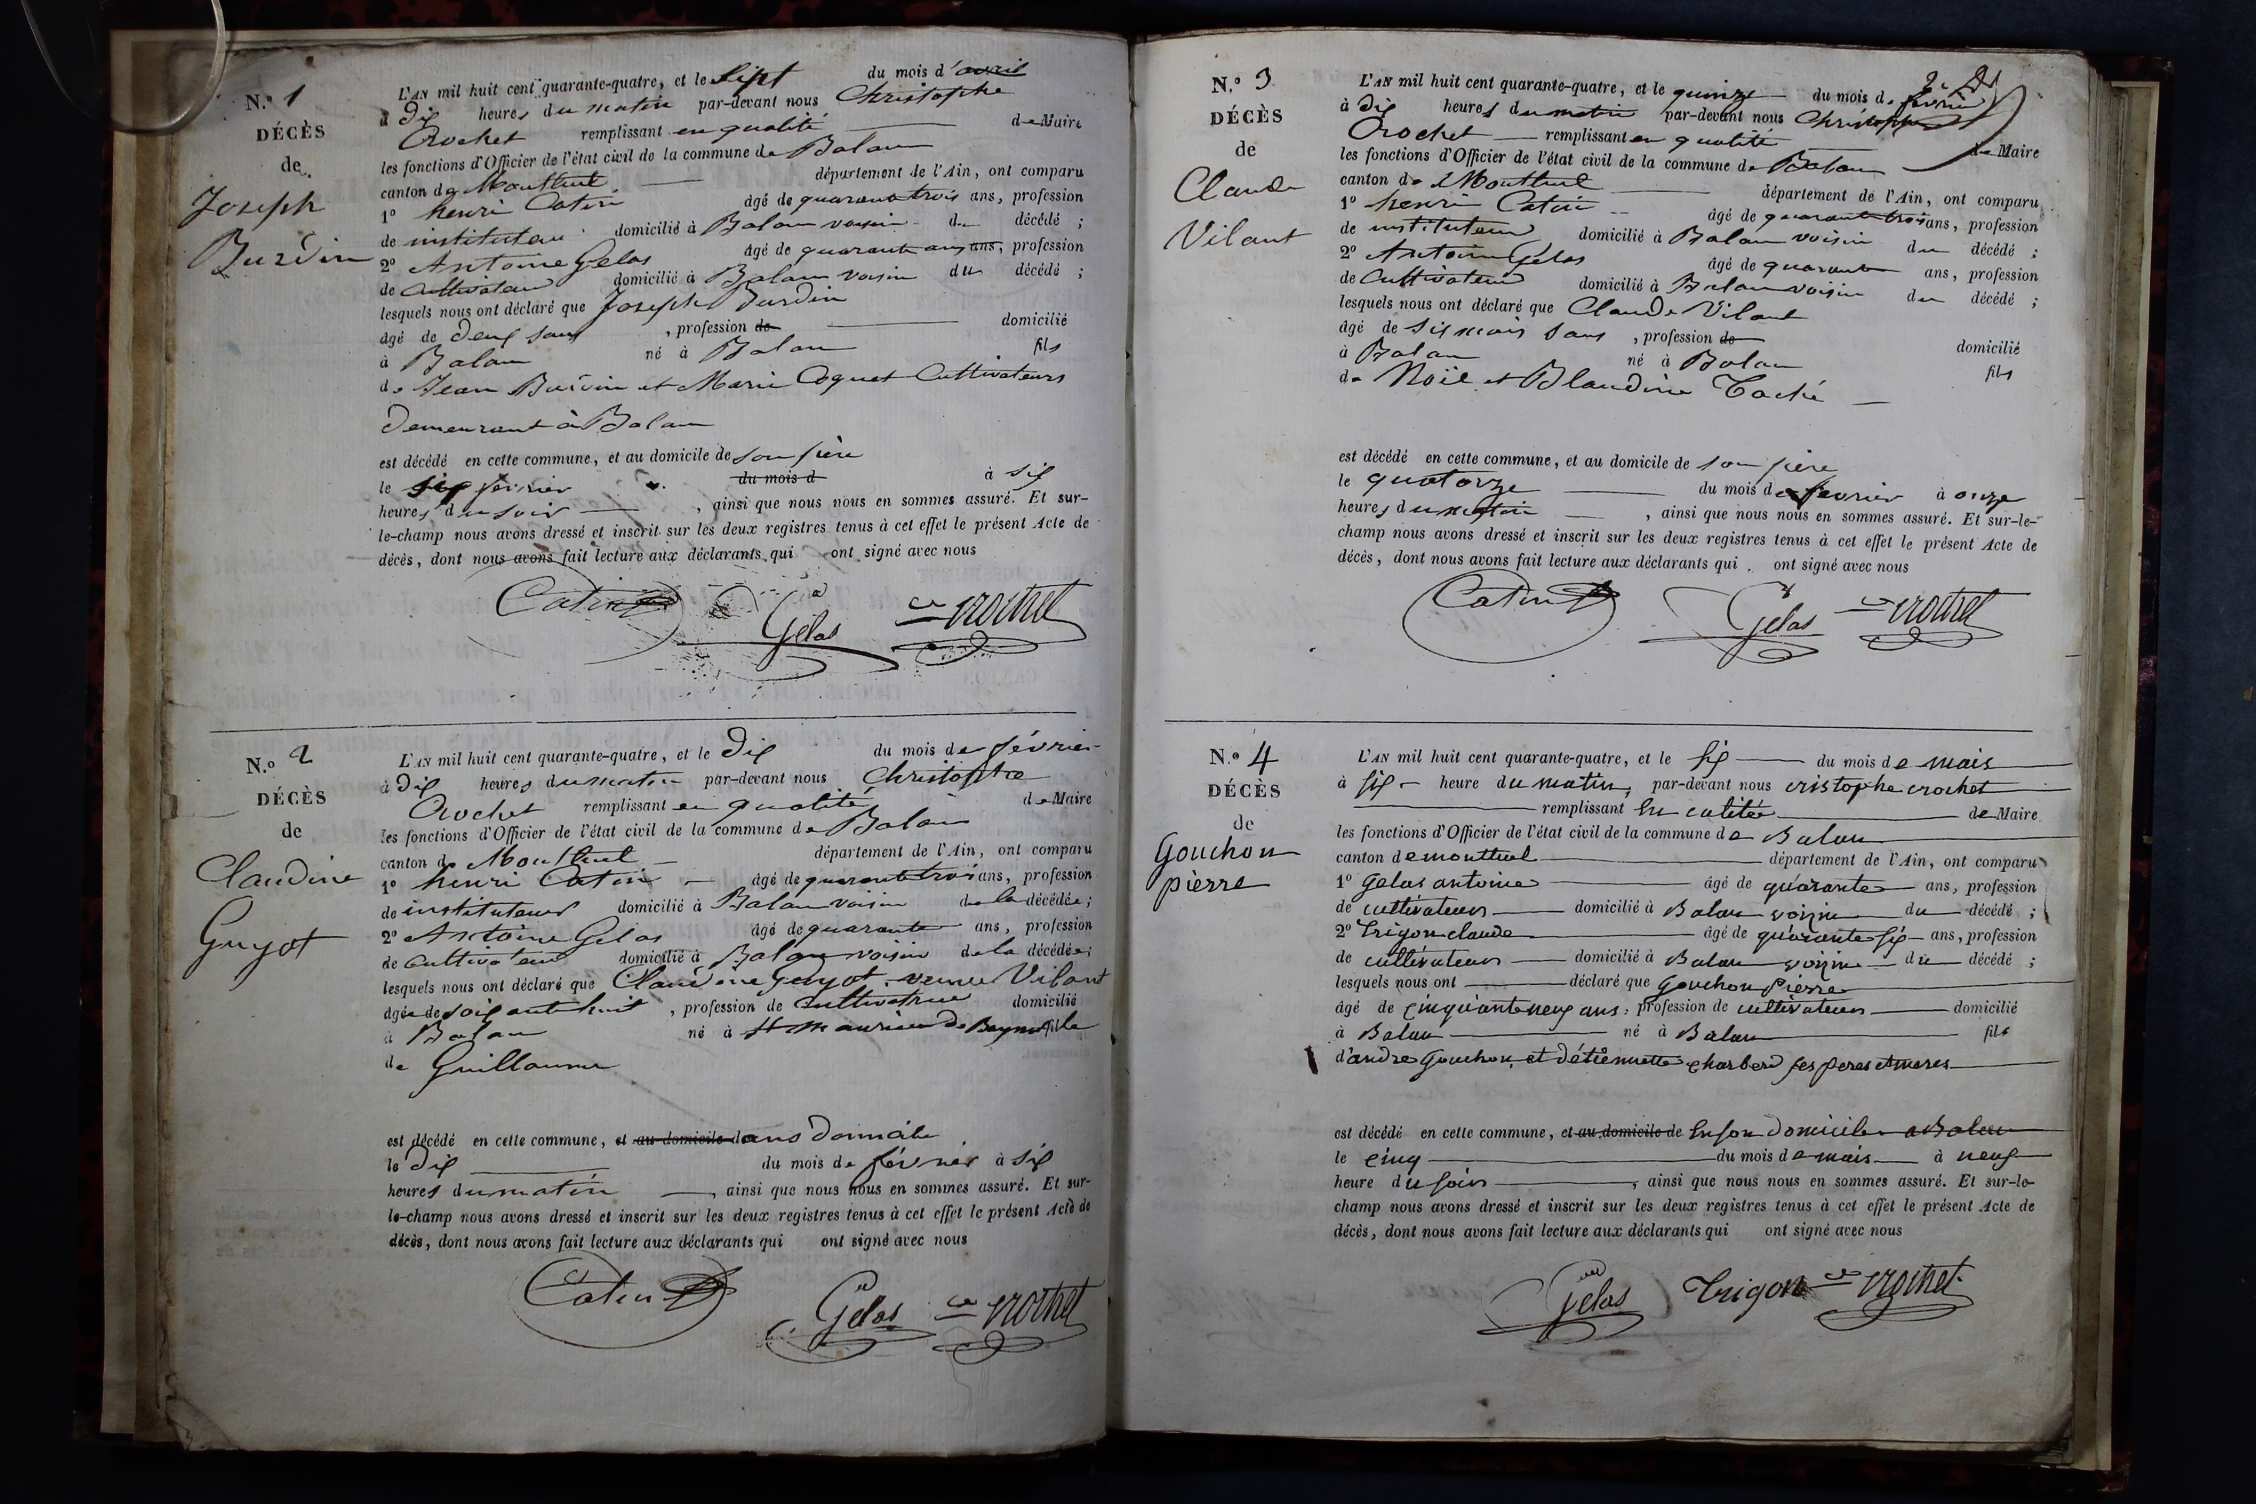 N.° 1
DÉCÈS
de
Joseph
Burdin
L'AN mil huit cent quarante-quatre, et le Sept du mois d'avril
à dix heures du matin par-devant nous Christophe
Crochet remplissant en qualité de Maire
les fonctions d'Officier de l'état civil de la commune de Balan
canton de Montluel département de l'Ain, ont comparu
1° henri Catin âgé de quarante trois ans, profession
de instituteur domicilié à Balan voisin du décédé ;
2° Antoine Gelas âgé de quarante ans ans, profession
de Cultivateur domicilié à Balan voisin du décédé ;
lesquels nous ont déclaré que Joseph Burdin
âgé de deux sans , profession de domicilié
à Balan né à Balan fils
de Jean Burdin et Marie Coquet Cultivateurs
demeurant à Balan
est décédé en cette commune, et au domicile de son père
le six février du mois d à six
heures du soir , ainsi que nous nous en sommes assuré. Et sur-
le-champ nous avons dressé et inscrit sur les deux registres tenus à cet effet le présent Acte de
décès, dont nous avons fait lecture aux déclarants qui ont signé avec nous
Catin Gelas Crochet
N.° 2
DÉCÈS
de
Claudine
Guyot
L'AN mil huit cent quarante-quatre, et le dix du mois de février
à dix heures du matin par-devant nous Christophe
Crochet remplissant en qualité de Maire
les fonctions d'Officier de l'état civil de la commune de Balan
canton de Montluel département de l'Ain, ont comparu
1° henri Catin âgé de quarante trois ans, profession
de instituteur domicilié à Balan voisin de la décédée ;
2° Antoine Gelas âgé de quarante ans, profession
de Cultivateur domicilié à Balan voisin de la décédée ;
lesquels nous ont déclaré que Claudine Guyot veuve Vilant
âgée de soixante huit , profession de Cultivatrice domicilié
à Balan né à St maurice de Beynost fille
de Guillaume
est décédé en cette commune, et au domicile dans domicile
le dix du mois de février à six
heures du matin , ainsi que nous nous en sommes assuré. Et sur-
le-champ nous avons dressé et inscrit sur les deux registres tenus à cet effet le présent Acte de
décès, dont nous avons fait lecture aux déclarants qui ont signé avec nous
Catin Gelas Crochet
N.° 3
DÉCÈS
de
Claude
Vilant
L'AN mil huit cent quarante-quatre, et le quinze du mois de février
à dix heures du matin par-devant nous Christophe
Crochet remplissant en qualité de Maire
les fonctions d'Officier de l'état civil de la commune de Balan
canton de Montluel département de l'Ain, ont comparu
1° henri Catin âgé de quarante trois ans, profession
de instituteur domicilié à Balan voisin du décédé ;
2° Antoine Gelas âgé de quarante ans, profession
de Cultivateur domicilié à Balan voisin du décédé ;
lesquels nous ont déclaré que Claude Vilant
âgé de six mois sans , profession de domicilié
à Balan né à Balan fils
de Noël et Blandine Taché
est décédé en cette commune, et au domicile de son père
le quatorze du mois de février à onze
heures du matin , ainsi que nous nous en sommes assuré. Et sur-le-
champ nous avons dressé et inscrit sur les deux registres tenus à cet effet le présent Acte de
décès, dont nous avons fait lecture aux déclarants qui ont signé avec nous
Catin Gelas Crochet
N.° 4
DÉCÈS
de
Gouchon
pierre
L'AN mil huit cent quarante-quatre, et le six du mois de mais
à six heure du matin, par-devant nous cristophe crochet
remplissant En calitée de Maire
les fonctions d'Officier de l'état civil de la commune de Balan
canton de montluel département de l'Ain, ont comparu
1° gelas antoine âgé de quarante ans, profession
de cultivateur domicilié à Balan voizin du décédé ;
2° trigon claude âgé de quarante six ans, profession
de cultivateur domicilié à Balan voizin du décédé ;
lesquels nous ont déclaré que gouchon pierre
âgé de cinquante neuf ans, profession de cultivateur domicilié
à Balan né à Balan fils
d'andre gouchon et détiennette charberd ses peres et meres
est décédé en cette commune, et au domicile de En son domicile a Balan
le cinq du mois de mais à neuf
heure du soir , ainsi que nous nous en sommes assuré. Et sur-le-
champ nous avons dressé et inscrit sur les deux registres tenus à cet effet le présent Acte de
décès, dont nous avons fait lecture aux déclarants qui ont signé avec nous
Gelas Trigon Crochet